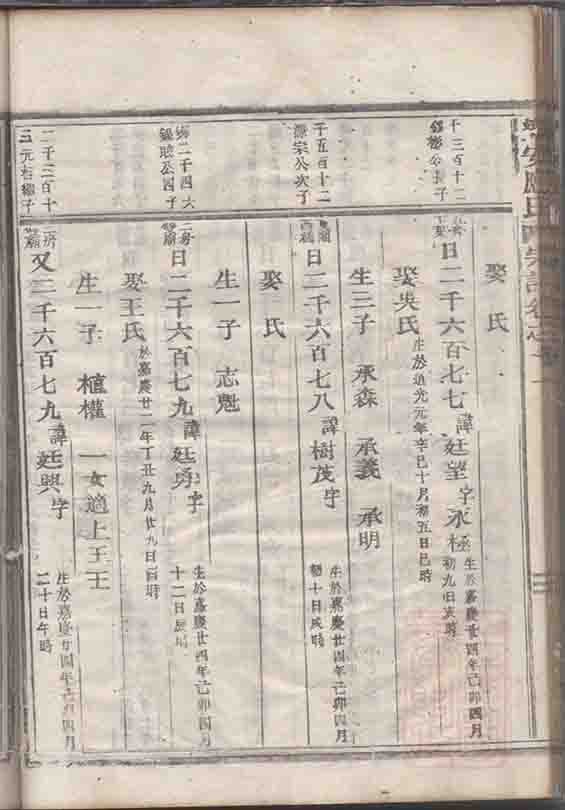 娶 氏
千三百十二
公長子
日二千六百七七 諱廷望 字永極
生於嘉慶廿四年己卯四月
初九日戌時
娶吳氏
生於道光元年辛巳十月初五日巳時
生三子 承森 承義 承明
千五百十二
宗公次子
日二千六百七八 諱樹茂 字
生於嘉慶廿四年己卯四月
初十日戌時
娶 氏
生一子 志魁
二千四六
公四子
二房
日二千六百七九 諱廷勇 字
生於嘉慶廿四年己卯四月
十二日辰時
娶王氏
於嘉慶廿二年丁丑九月廿九日酉時
生一子 植權 一女適上王王
二千三百十
元 子
二房
又二千六百七九 諱廷興 字
生於嘉慶廿四年己卯四月
二十日午時